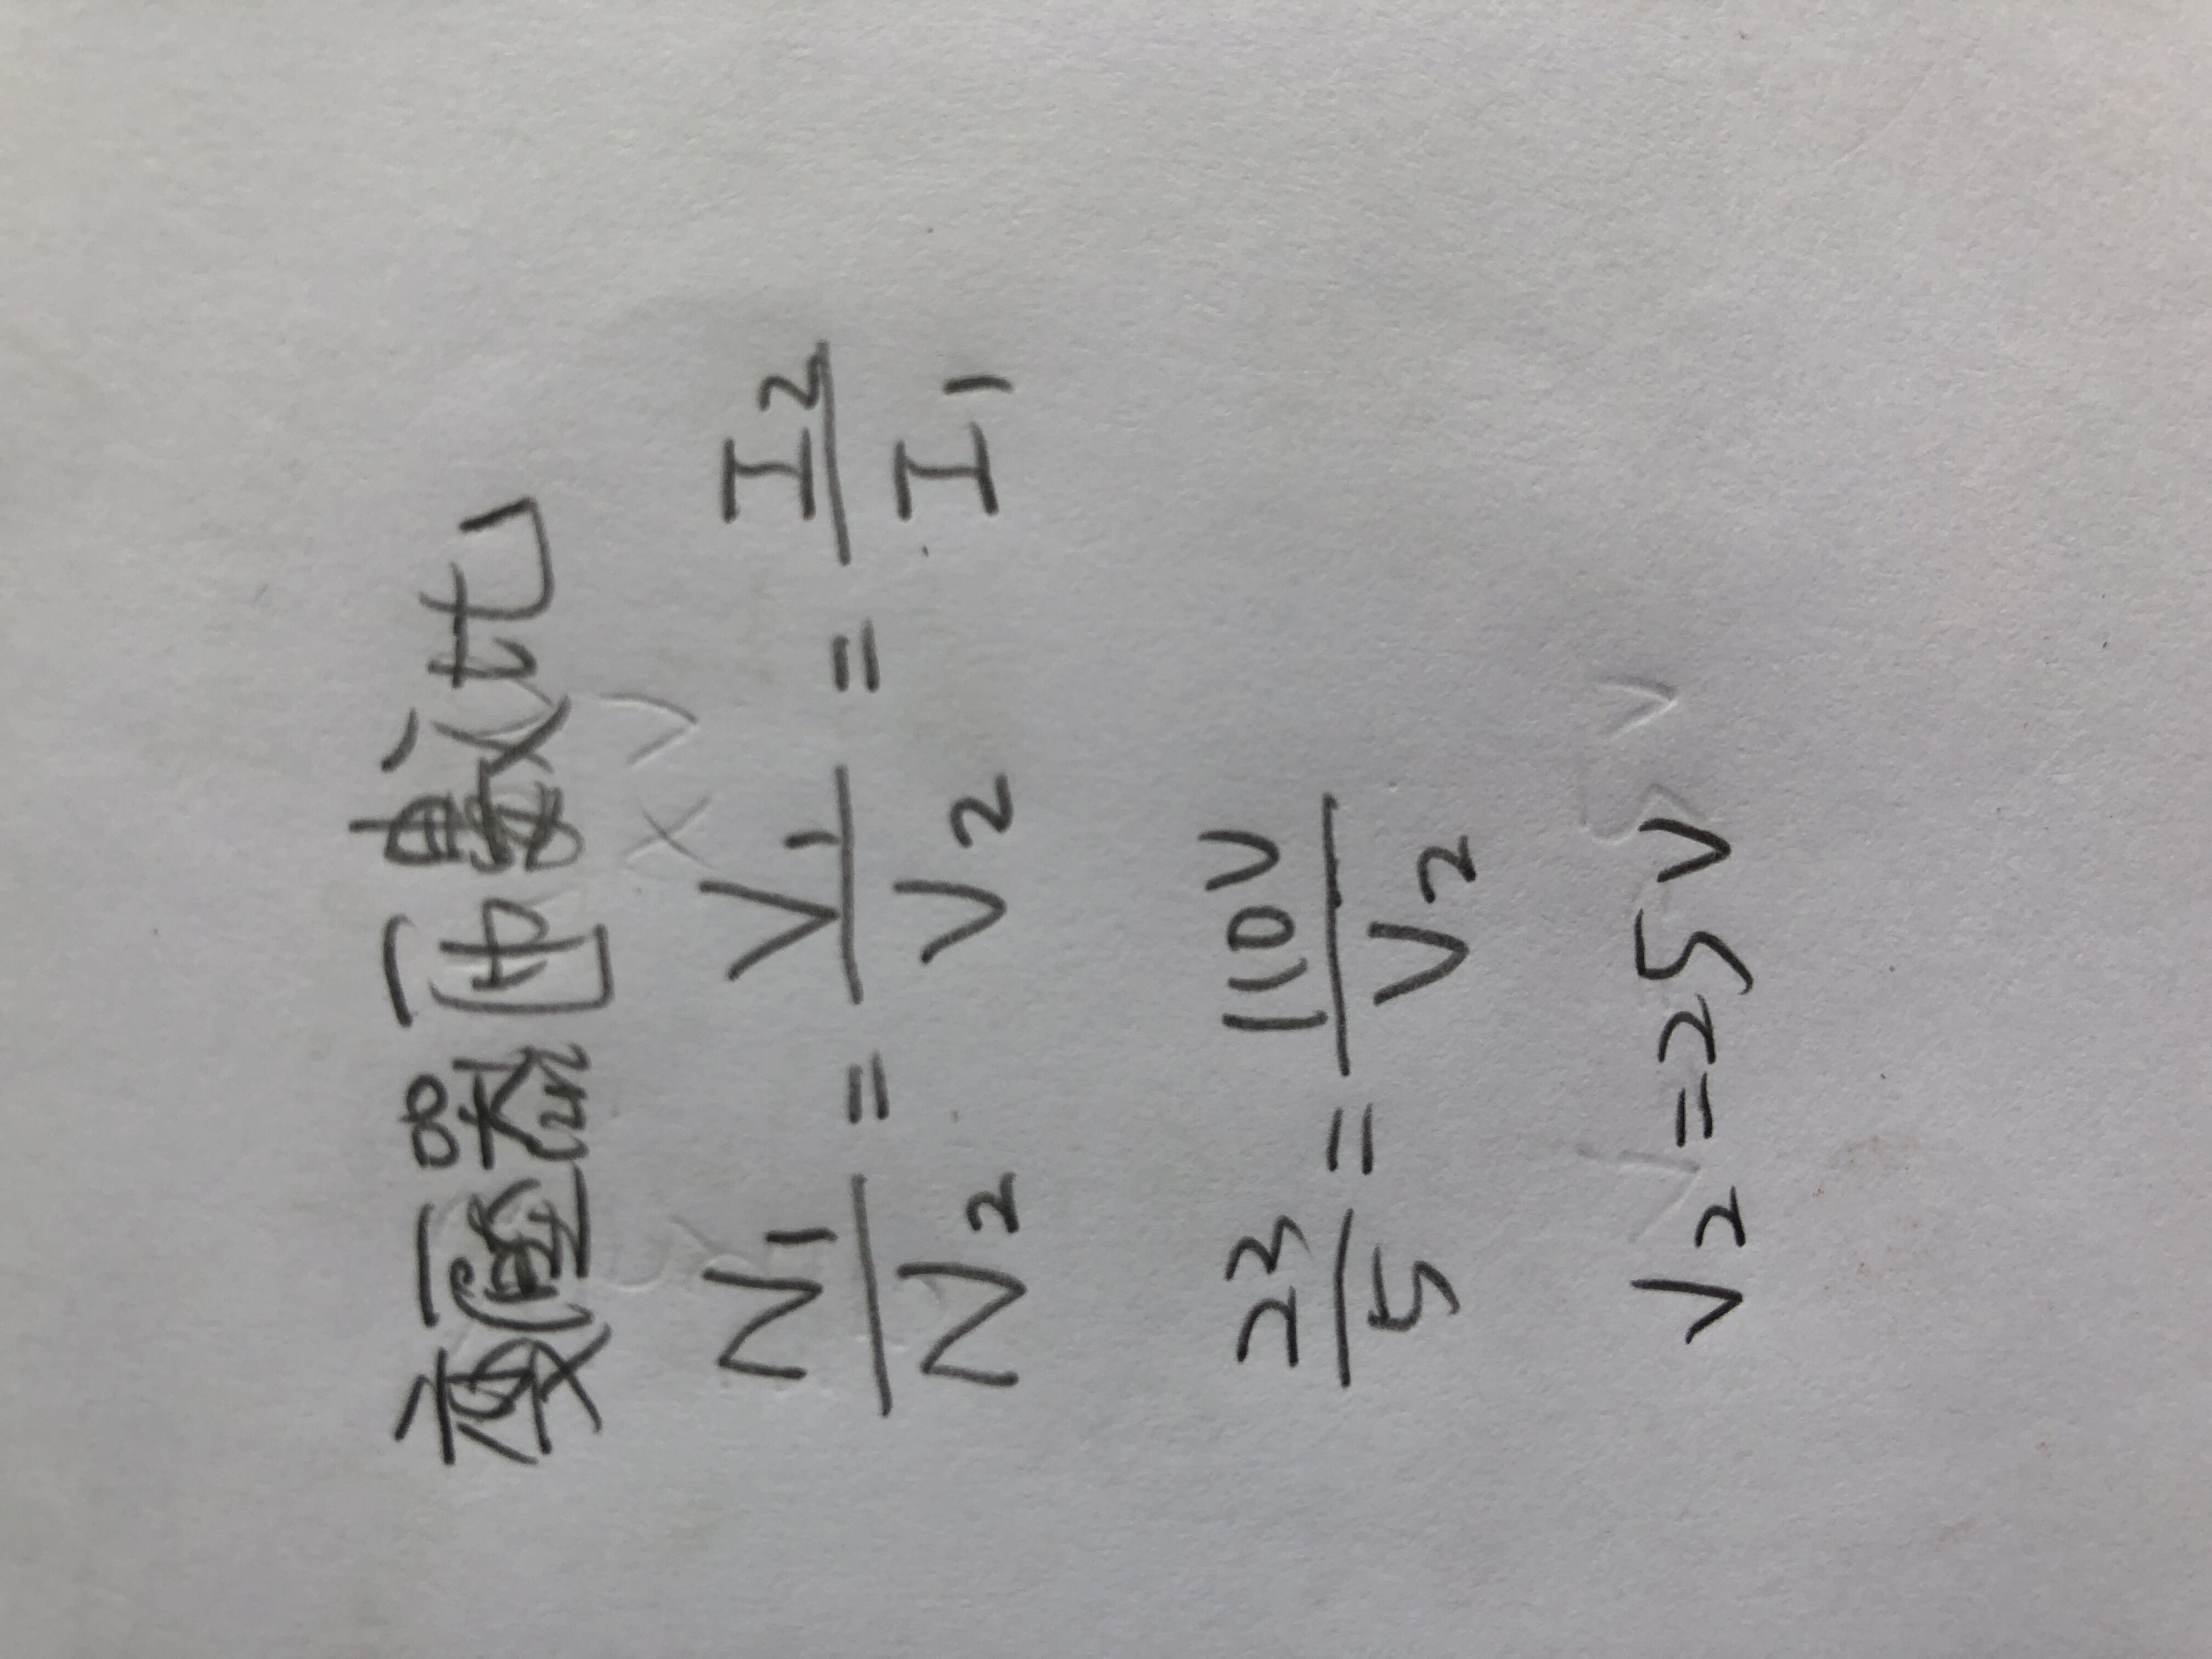 變壓器匝數比
N1/N2 = V1/V2 = I2/I1
22/5 = 110V/V2
V2=25V